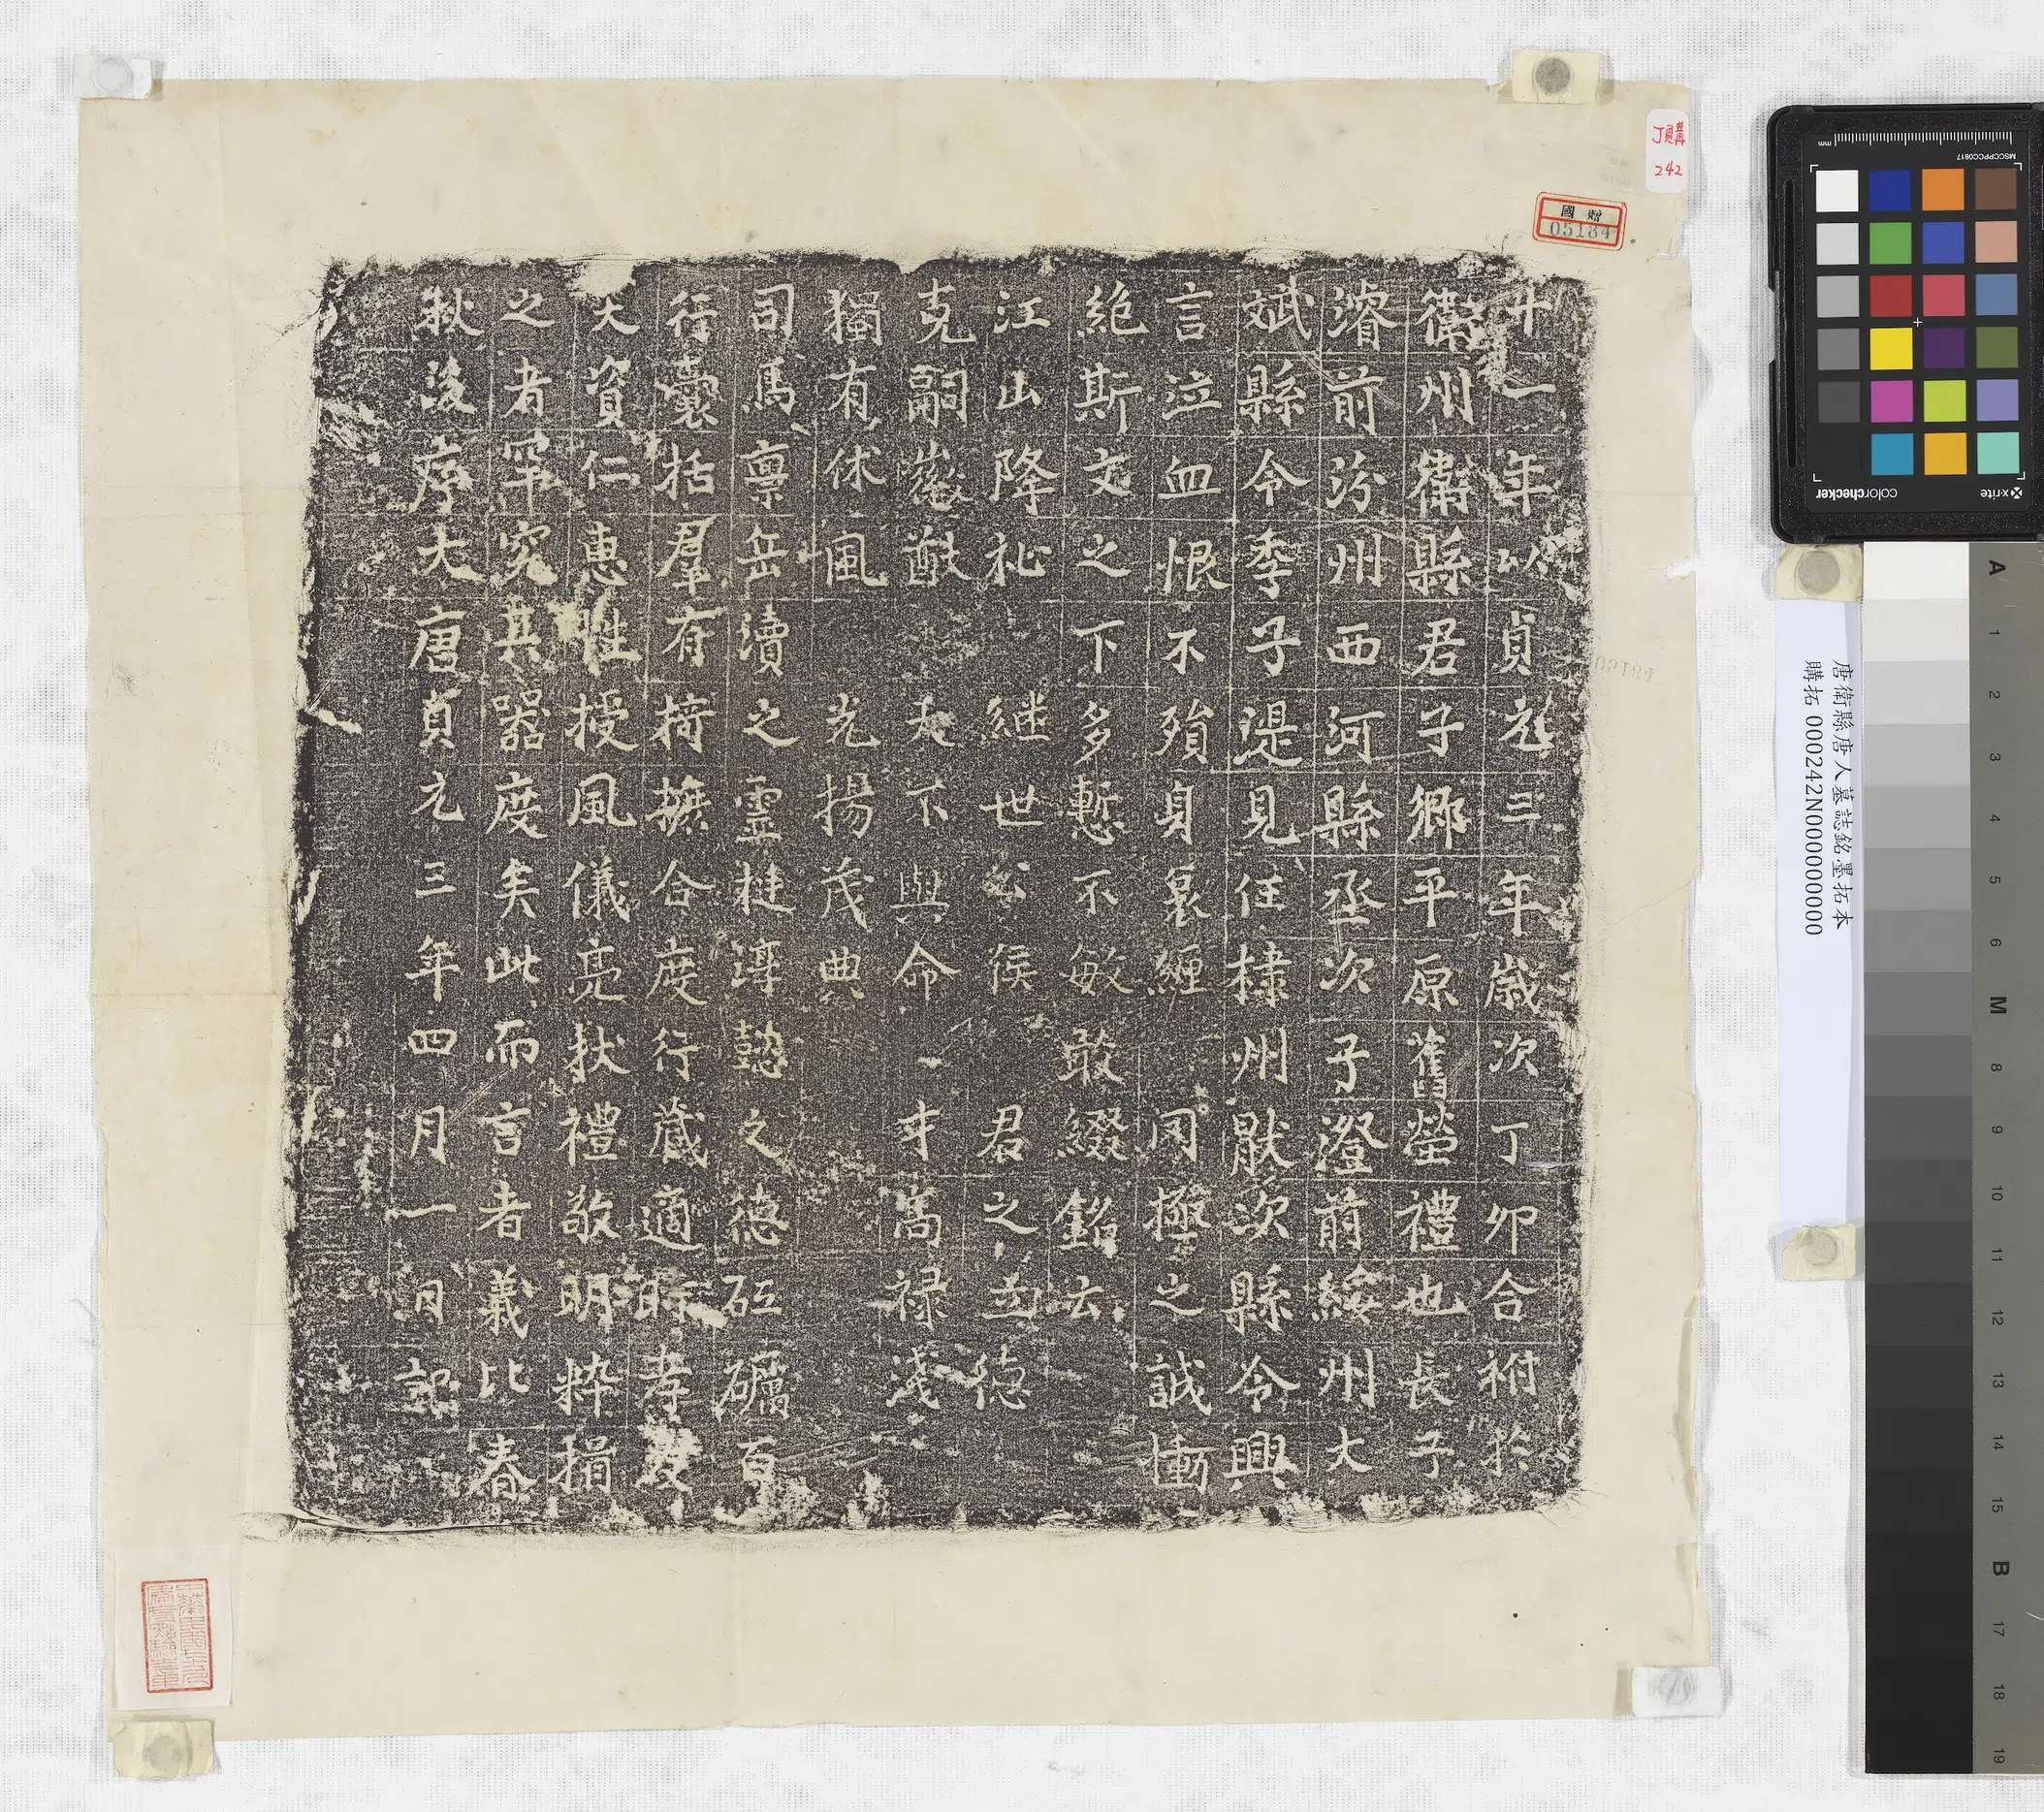 廿一年以貞元三年歲次丁卯合祔於
衞州衞縣君子鄉平原舊塋禮也長子
濬前汾州西河縣丞次子澄前綏州大
斌縣令季子湜見任棣州猒次縣令興
言泣血恨不殞身裒纏罔極之誠慟
絶斯文之下多慙不敏敢綴銘云
江山降祉 継世公侯 君之並德
克嗣徽猷 天不與命 才高禄淺
獨有休風 光揚茂典
司馬禀岳瀆之靈挺淳懿之德砥礪百
行囊括羣有揹摭合度行藏適時孝友
天資仁惠性授風儀亮狀禮敬明粹損
之者罕究其器度矣此而言者義比春
秋後序大唐貞元三年四月一日記
丁購
242
國贈
05184
唐衛縣唐人墓誌銘墨拓本
購拓 000242N000000000
mm
MSCCPPCC0817
x-rite
colorchecker
A 1 2 3 4 5 6 M 8 9 10 11 12 13 14 15 B 17 18 19